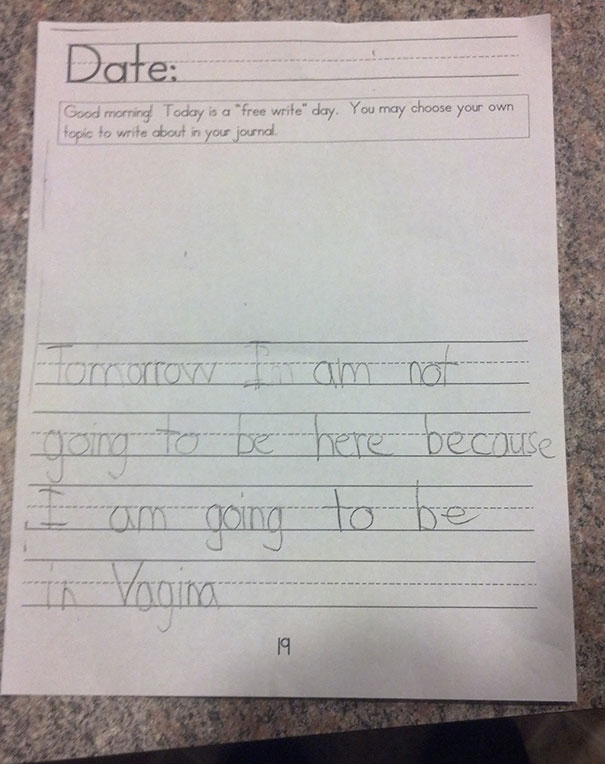 Date:
Good morning! Today is a "free write" day. You may choose your own
topic to write about in your journal.
Tomorrow I am not
going to be here because
I am going to be
in Vagina
19